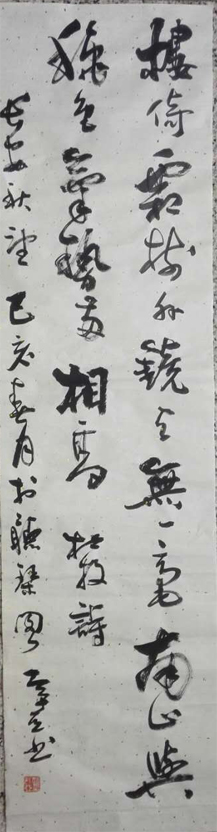 樓倚霜樹外鏡天無一毫南山與
秋色氣勢兩相高 杜牧詩
長安秋望 己亥春月於聽琴 書